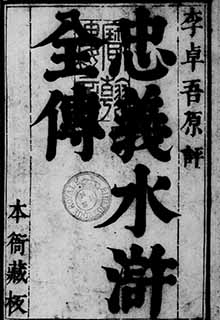 李卓吾原評
忠義水滸
全傳
本衙藏板